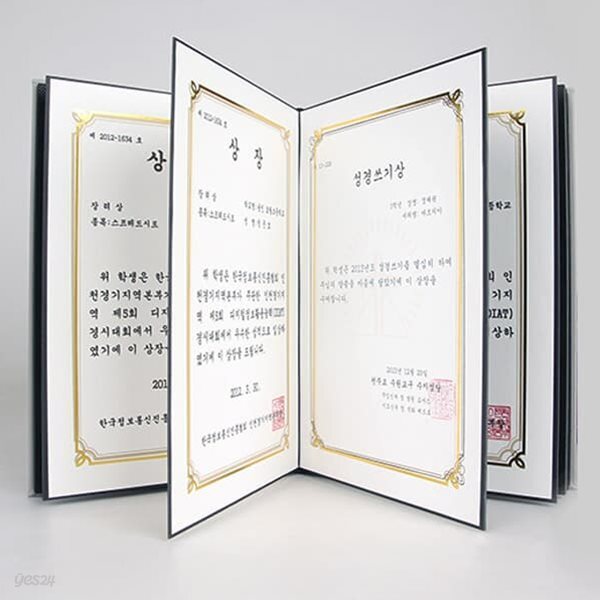 제 2012-1634 호
상
장 려 상
종목:스프레드시트
위 학생은 한국
천경기지역본부가
역 제5회 디지
경시대회에서 우
였기에 이 상장
201
한국정보통신진흥
제 2012-1634 호
상 장
장 려 상
종목:스프레드시트
위 학생은 한국정보통신진흥협회 인
천경기지역본부가 주관한 인천경기지
역 제5회 디지털정보활용능력(DIAT)
경시대회에서 우수한 성적으로 입상하
였기에 이 상장을 드립니다.
2012. 3. 30.
한국정보통신진흥협회 인천경기지역본부장
성경쓰기상
위 학생은 2012년도 성경쓰기를 열심히 하여
주님의 말씀을 마음에 담았기에 이 상장을
수여합니다.
2012년 12월 25일
천주교 수원교구 수지성당
등학교
회 인
기지
(DIAT)
상하
yes24